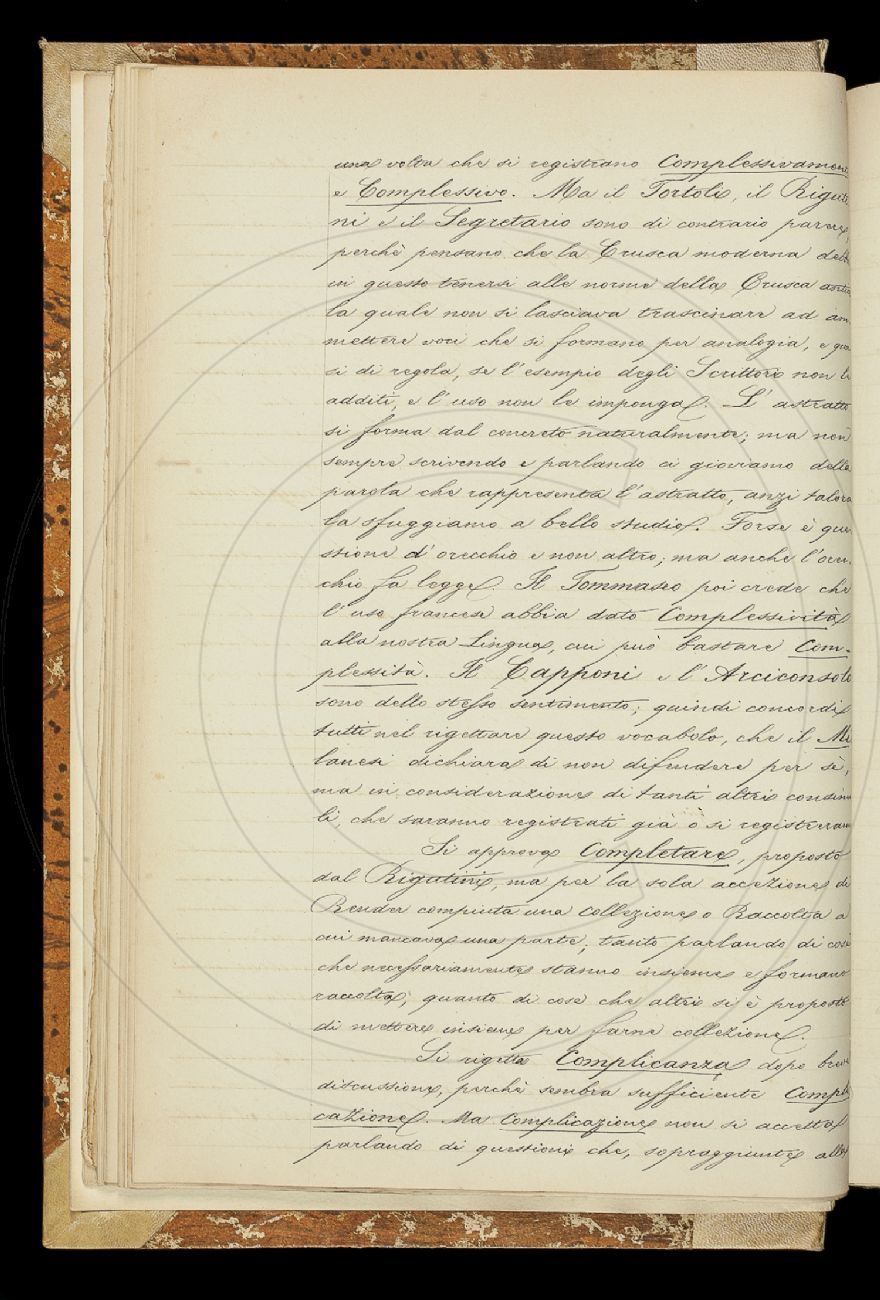 una volta che si registrano Complessivament
e Complessivo. Ma il Tortoli, il Riguti
ni e il Segretario sono di contrario parere,
perchè pensano che la Crusca moderna debb
in questo tenersi alle norme della Crusca antic
la quale non si lasciava trascinare ad am
mettere voci che si formano per analogia, e qua
si di regola, se l'esempio degli Scrittori non le
additi, e l'uso non le imponga. L'astratto
si forma dal concreto naturalmente; ma non
sempre scrivendo e parlando ci gioviamo della
parola che rappresenta l'astratto, anzi talora
la sfuggiamo a bello studio. Forse è que
stione d'orecchio e non altro; ma anche l'orec
chio fa legge. Il Tommaseo poi crede che
l'uso francese abbia dato Complessività
alla nostra Lingua, cui può bastare Com-
plessità. Il Capponi e l'Arciconsolo
sono dello stesso sentimento; quindi concordi
tutti nel rigettare questo vocabolo, che il Mi
lanesi dichiara di non difendere per sè,
ma in considerazione di tanti altri consimi
li, che saranno registrati già o si registreran
Si approva Completare, proposto
dal Rigutini, ma per la sola accezione di
Render compiuta una collezione o Raccolta a
cui mancava una parte; tanto parlando di cose
che necessariamente stanno insieme e formano
raccolta; quanto di cose che altri si è proposto
di mettere insieme per farne collezione.
Si rigetta Complicanza dopo breve
discussione, perchè sembra sufficiente Compli
cazione. Ma Complicazione non si accetta
parlando di questioni che, sopraggiunte alle